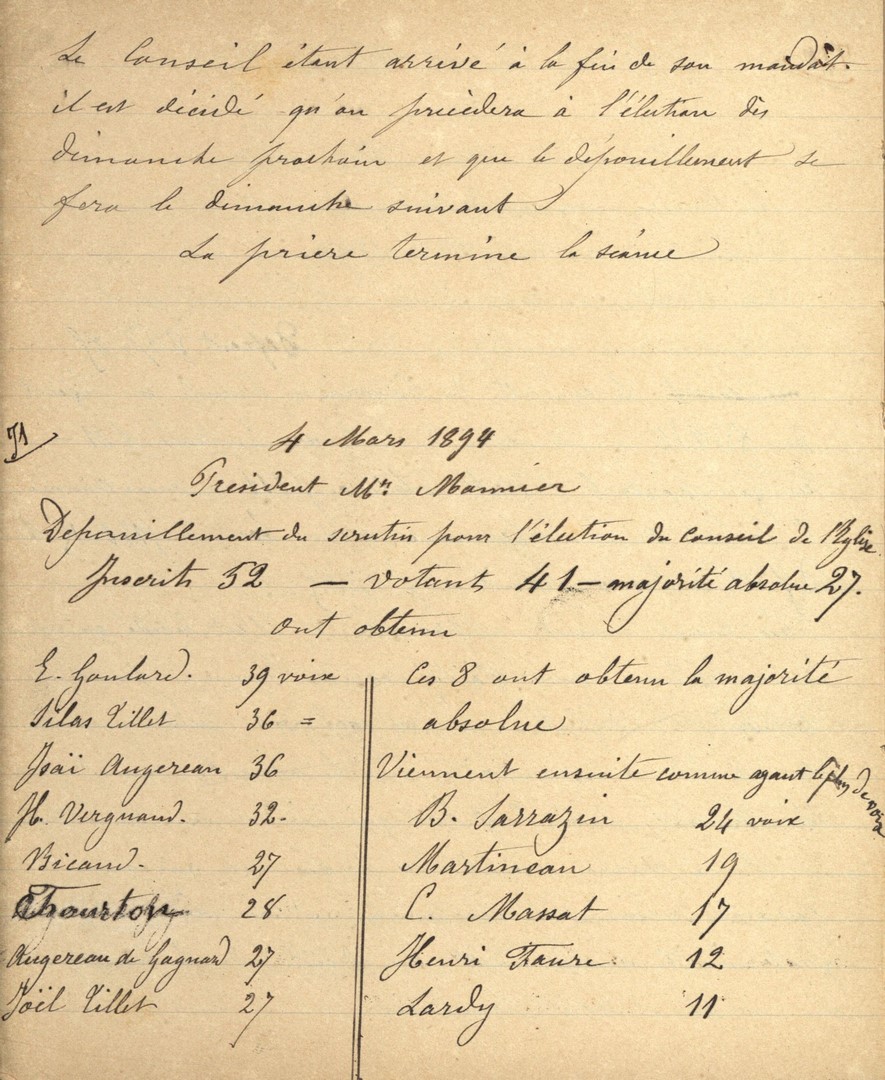 Le Conseil étant arrivé à la fin de son mandat.
il est décidé qu'on procèdera à l'élection dès
dimanche prochain et que le dépouillement se
fera le dimanche suivant
La prière termine la séance
71
4 Mars 1894
President Mr. Monnier
Depouillement du scrutin pour l'élection du Conseil de l'Eglise.
Inscrits 52 — votants 41 — majorité absolue 27.
ont obtenu
E. Goulard. 39 voix
Silas Tillet 36 =
Isaï Augereau 36
H. Vergnaud. 32-
Bicaud. 27
Thourton 28
Augereau de Gagnard 27
Joël Tillet 27
Ces 8 ont obtenu la majorité
absolue
Viennent ensuite comme ayant le plus de voix
B. Sarrazin 24 voix
Martineau 19
C. Massat 17
Henri Faure 12
Lardy 11